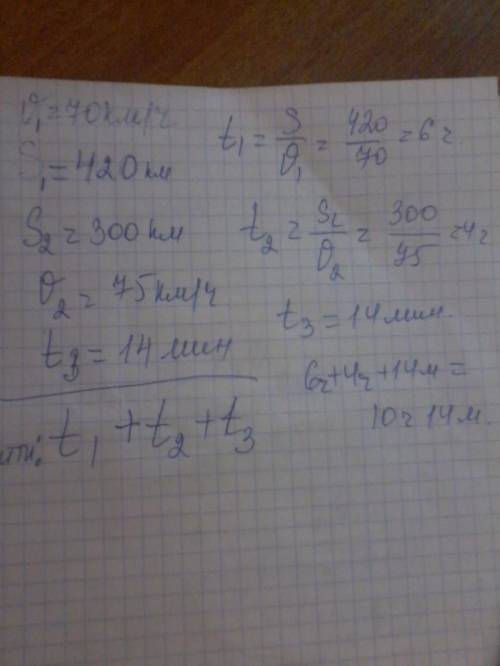 v₁ = 70 км/ч
S₁ = 420 км
S₂ = 300 км
v₂ = 75 км/ч
t₃ = 14 мин
йти: t₁ + t₂ + t₃
t₁ = S/v₁ = 420/70 = 6 ч.
t₂ = S₂/v₂ = 300/75 = 4 ч
t₃ = 14 мин.
6ч + 4ч + 14м =
10ч 14м.